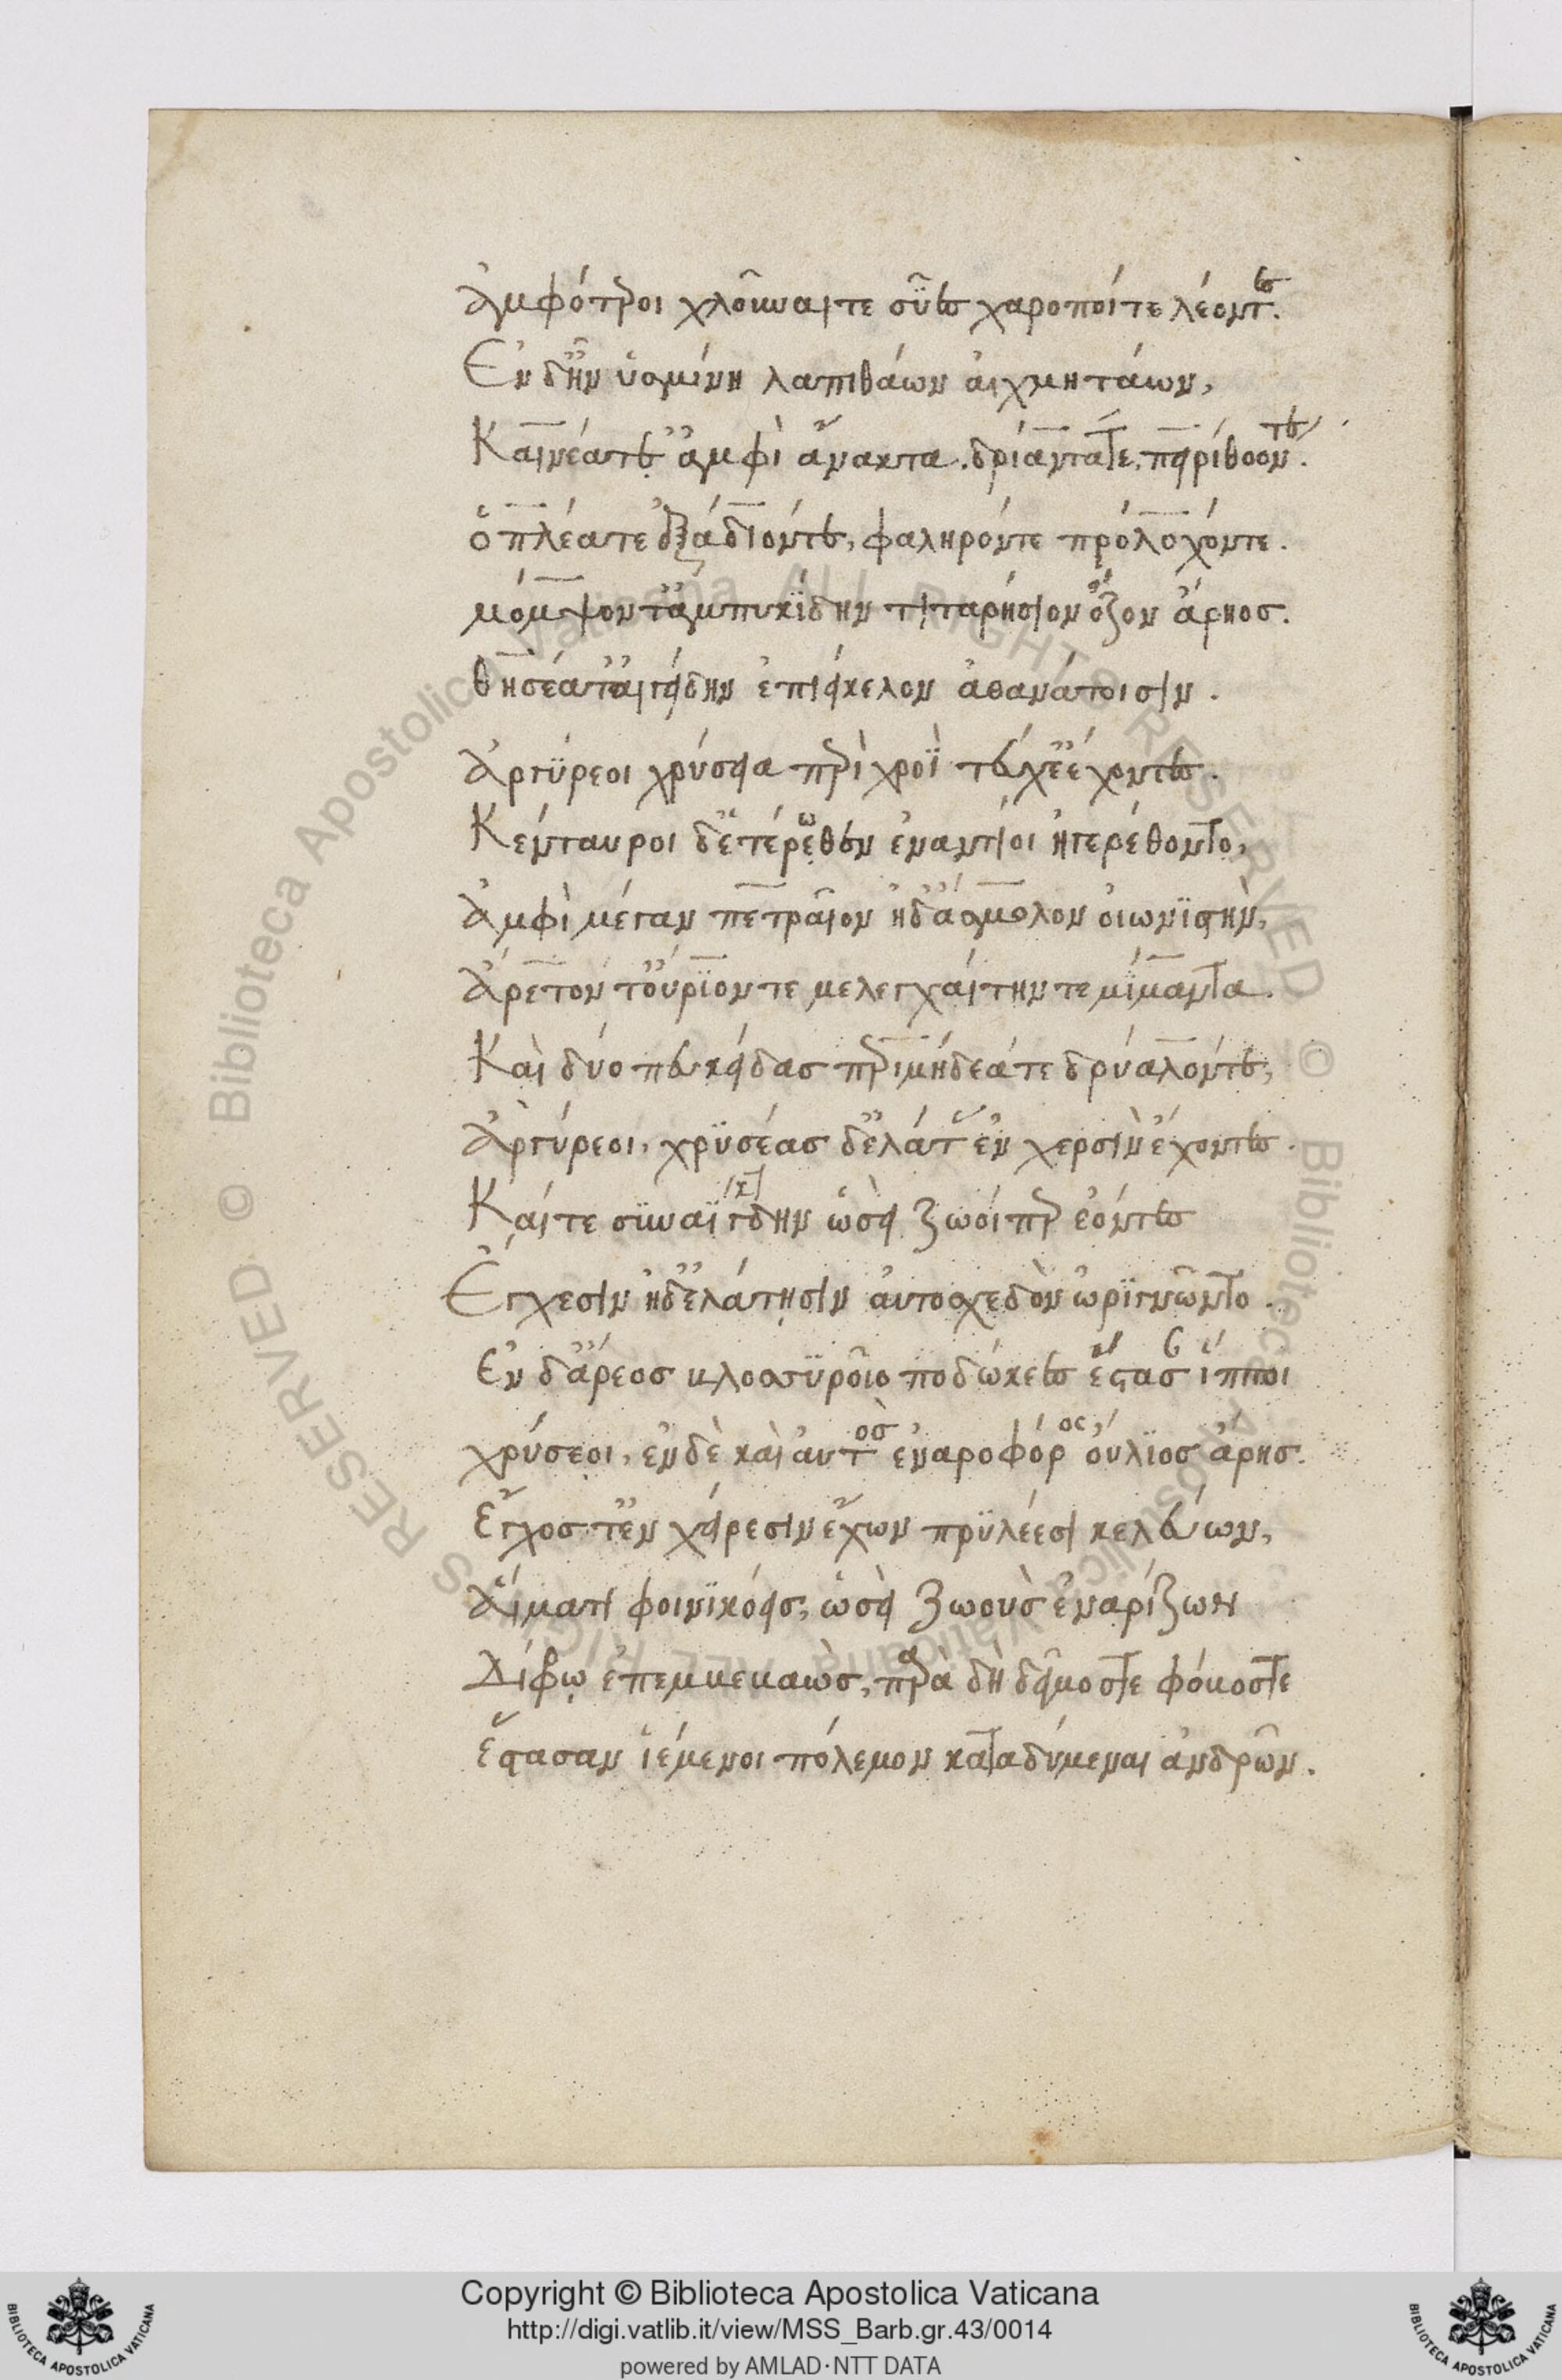 Ἀμφότεροι χλοῦναί τε σῦες χαροποί τε λέοντες.
Ἐν δ' ἦν ὑσμίνη λαπιθάων αἰχμητάων,
Καινέα τ' ἀμφὶ ἄνακτα. δρύαντά τε, πειρίθοόν τε.
ὁπλέα τε ἐξάδιόν τε, φάληρόν τε πρόλοχόν τε.
μόμψον τ' ἀμπυκΐδην τιταρήσιον ὄζον ἄρηος.
θησέα τ' αἰγείδην ἐπιείκελον ἀθανάτοισιν.
Ἀργύρεοι χρύσεια περὶ χροῒ τεύχε' ἔχοντες.
Κένταυροι δ' ἑτέρωθεν ἐναντίοι ἠγερέθοντο,
Ἀμφὶ μέγαν πετραῖον ἠδ' ἄσμολον οἰωνιστὴν,
Ἄρετον τ' οὔριόν τε μελεγχαίτην τε μίμαντα.
Καὶ δύο πευκείδας περιμήδεά τε δρύαλόν τε,
Ἀργύρεοι, χρυσέας δ' ἐλάτας ἐν χερσὶν ἔχοντες.
Καί τε συναΐγδην ὡσεὶ ζωοί περ ἐόντες
Ἔγχεσιν ἠδ' ἐλάτῃσιν αὐτοσχεδὸν ὠριγνῶντο.
Ἐν δ' ἄρεος βλοσυροῖο ποδώκεες ἕστασαν ἵπποι
χρύσεοι, ἐν δὲ καὶ αὐτὸς ἐναροφόρος οὔλιος ἄρης.
Ἔγχος τ' ἐν χείρεσιν ἔχων πρυλέεσι κελεύων,
Αἵματι φοινικόεις, ὡσεὶ ζωοὺς ἐναρίζων
Δίφρῳ ἐπεμβεβαὼς, παρὰ δὴ δεῖμός τε φόβος τε
ἕστασαν ἱέμενοι πόλεμον καταδύμεναι ἀνδρῶν.
Copyright © Biblioteca Apostolica Vaticana
http://digi.vatlib.it/view/MSS_Barb.gr.43/0014
powered by AMLAD·NTT DATA